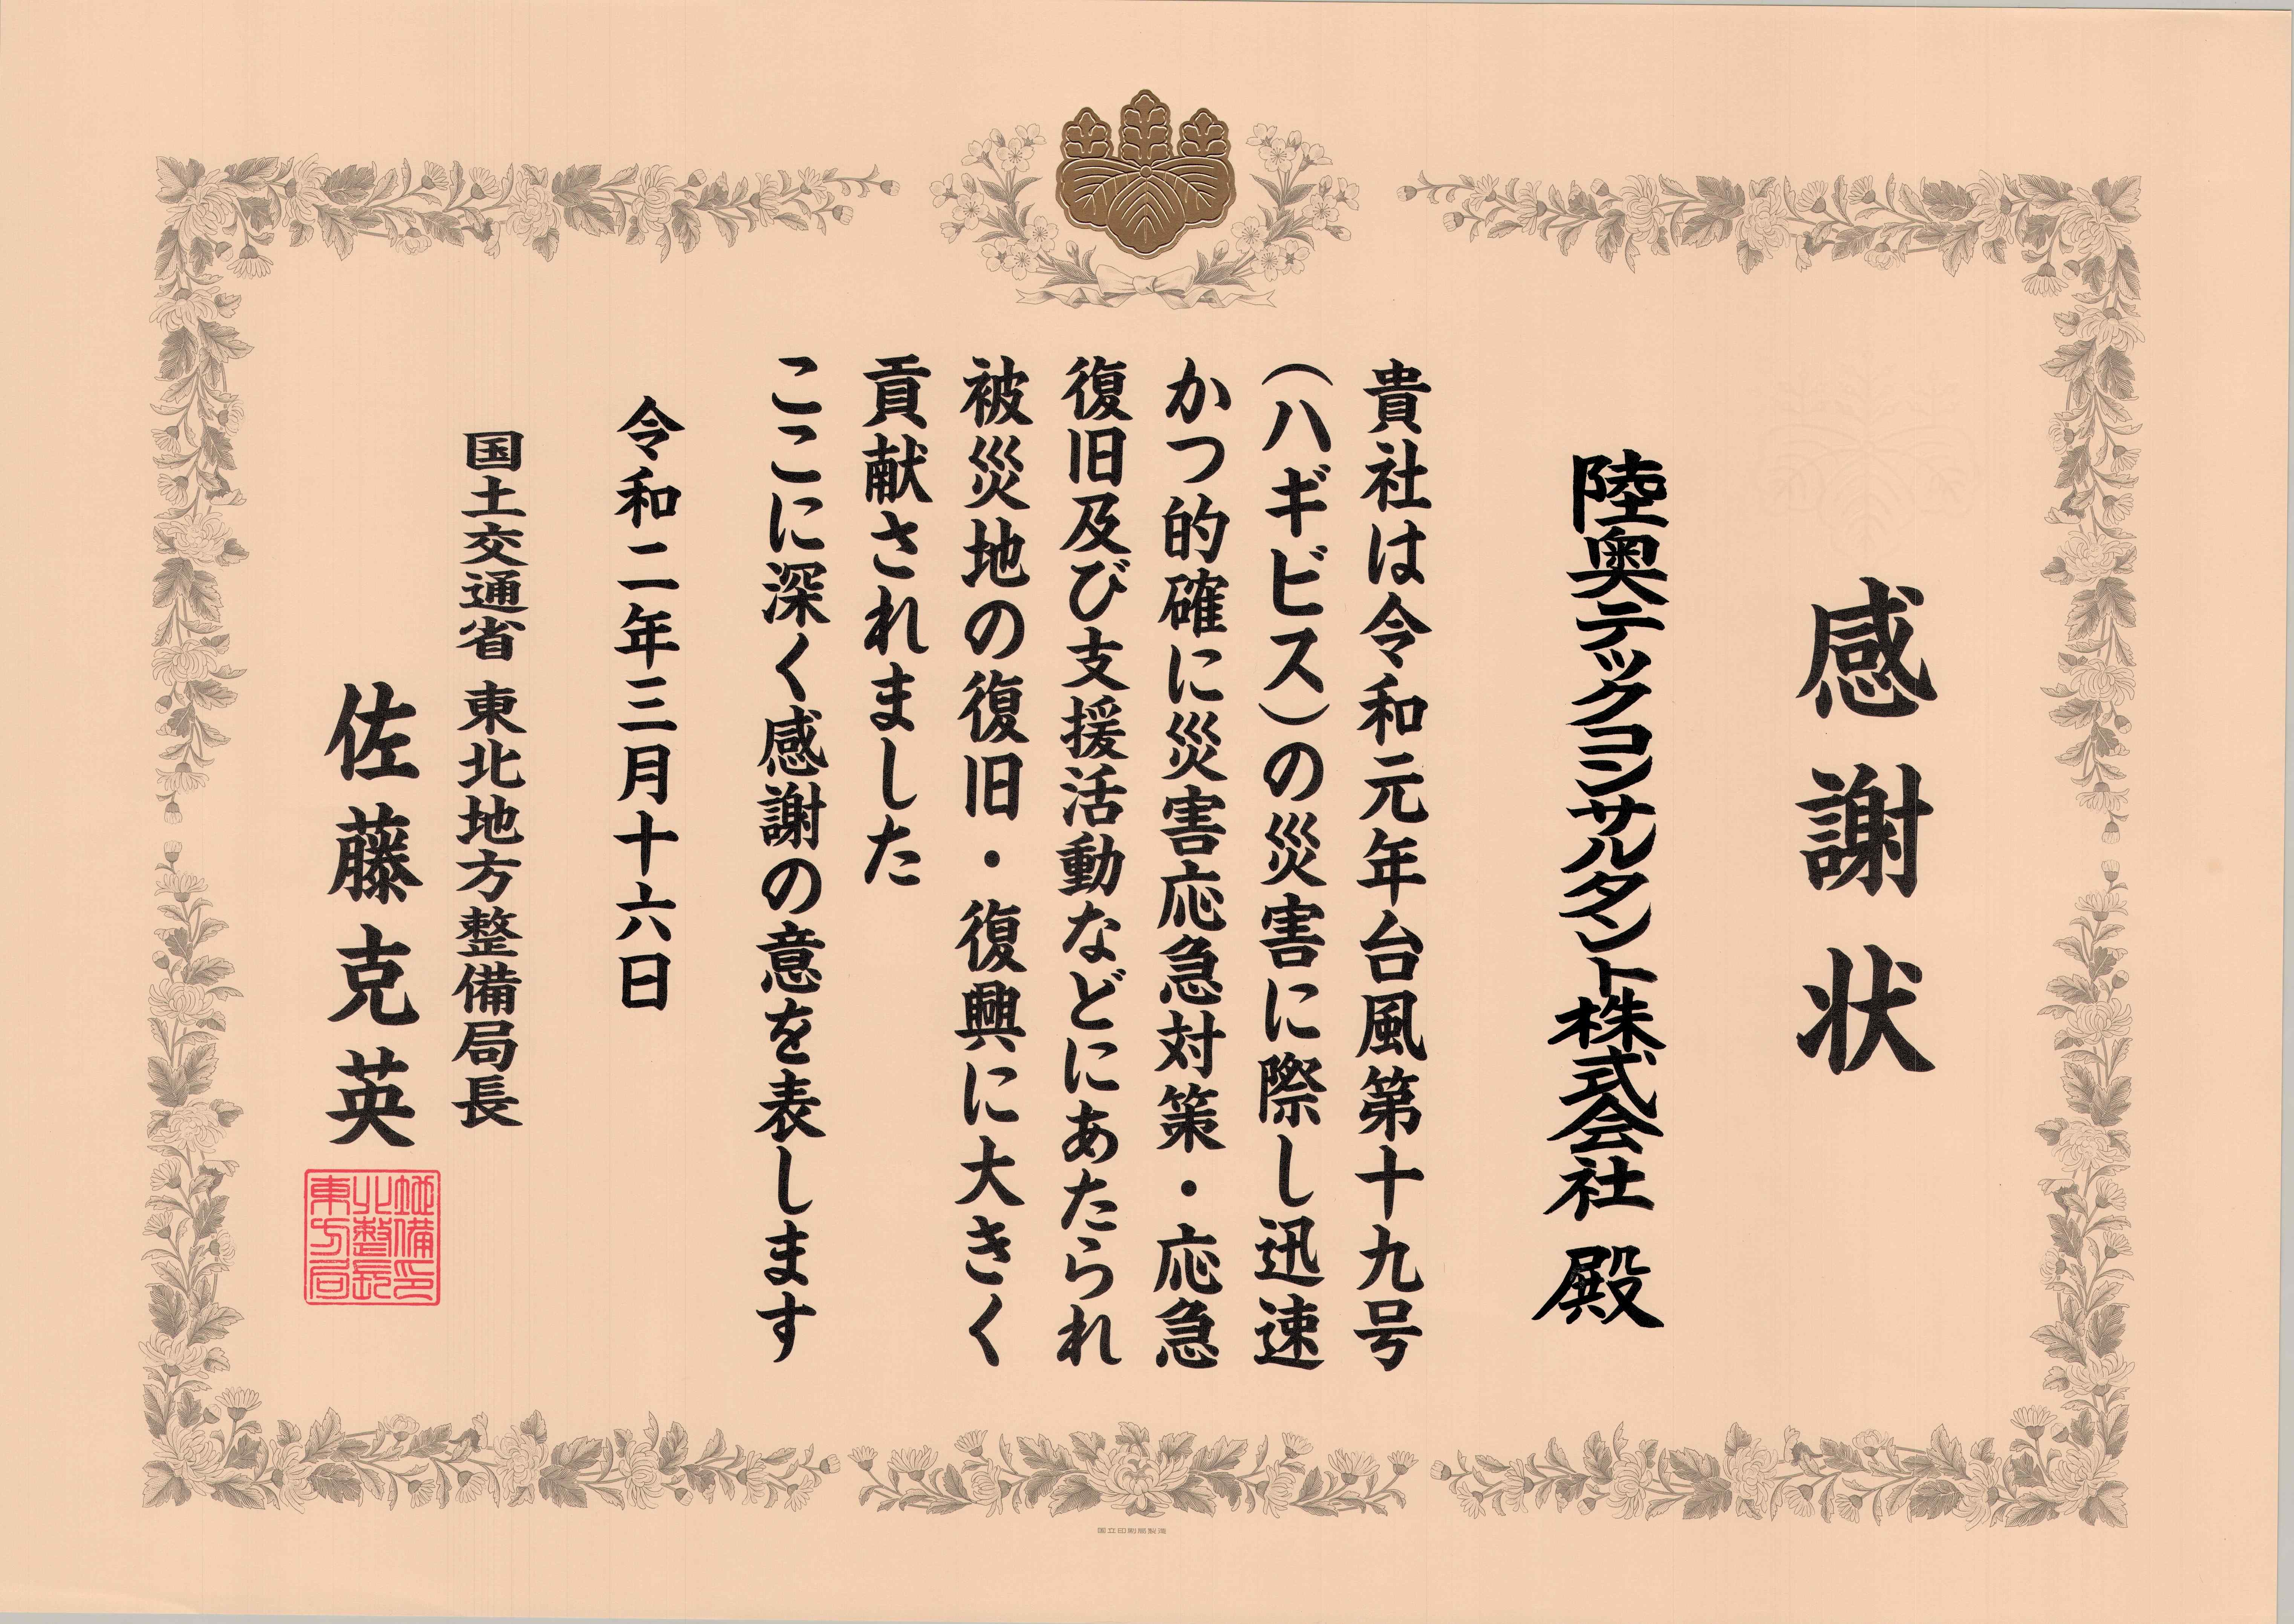 感謝状
陸奥テックコンサルタント株式会社 殿
貴社は令和元年台風第十九号
(ハギビス)の災害に際し迅速
かつ的確に災害応急対策・応急
復旧及び支援活動などにあたられ
被災地の復旧・復興に大きく
貢献されました
ここに深く感謝の意を表します
令和二年三月十六日
国土交通省 東北地方整備局長
佐藤克英
国立印刷局製造